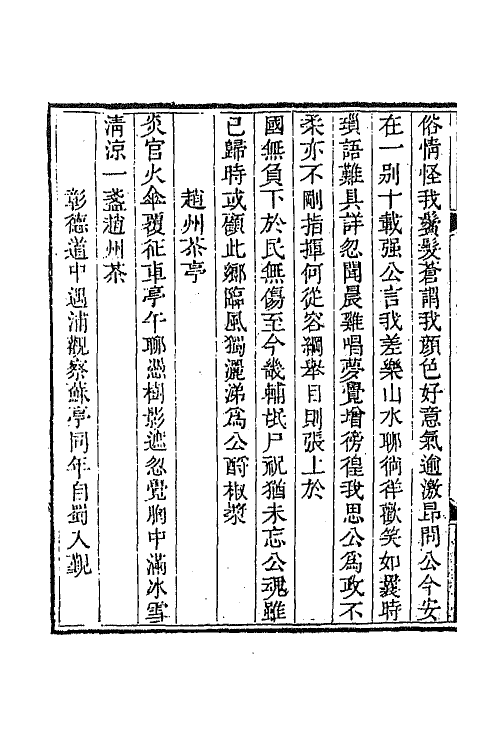 俗情怪我鬢髮蒼謂我顔色好意氣逾激昂問公今安
在一别十載强公言我差樂山水聊徜徉歡笑如曩時
瑣語難具詳忽聞晨雞唱夢覺增徬徨我思公爲政不
柔亦不剛指揮何從容綱舉目則張上於
國無負下於民無傷至今畿輔氓尸祝猶未忘公魂雖
已歸時或顧此鄉臨風獨灑涕爲公酹椒漿
趙州茶亭
炎官火傘覆征車亭午聊憑樹影遮忽覺胸中滿冰雪
清涼一盞趙州茶
彰德道中遇浦觀察蘇亭同年自蜀入覲